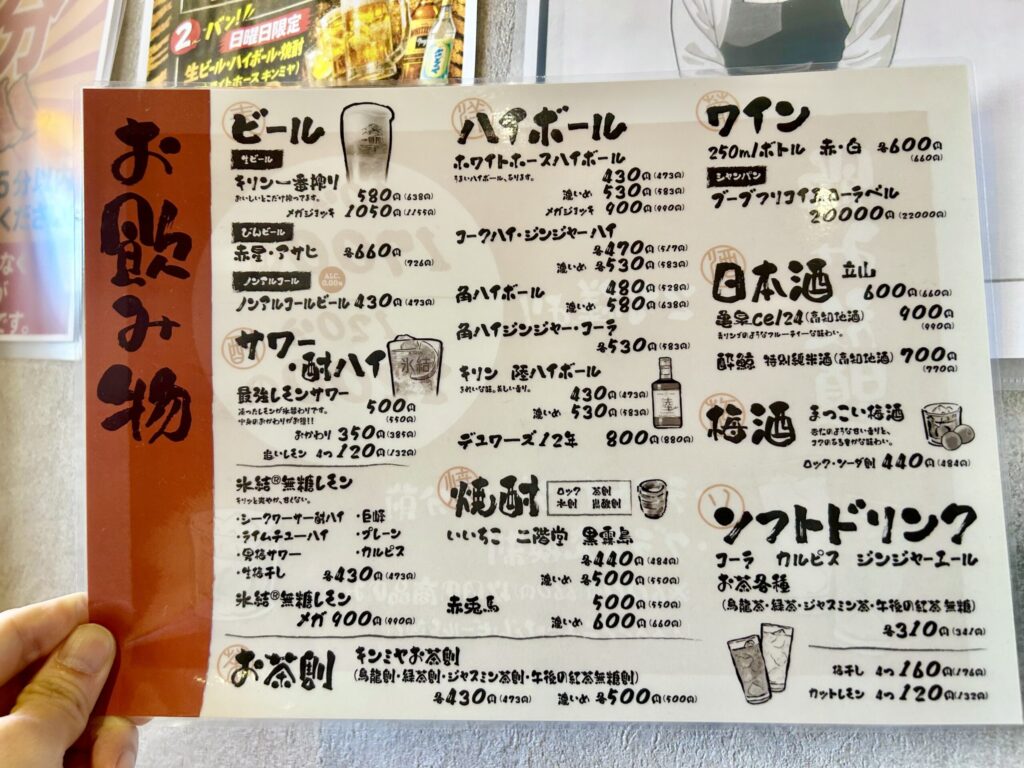 2時 バン!!
日曜日限定
生ビール・ハイボール・焼酎
お飲み物
ビール
生ビール
キリン一番搾り
おいしいとこだけ搾ってます。
580円(638円)
メガジョッキ 1050円(1155円)
びんビール
赤星・アサヒ 各660円
(726円)
ノンアルコール
ALC. 0.00%
ノンアルコールビール 430円(473円)
サワー・酎ハイ
氷結
最強レモンサワー
凍ったレモンが氷替わりです。
中身のおかわりがお得!!
500円
(550円)
おかわり 350円(385円)
追いレモン 4つ 120円(132円)
氷結®無糖レモン
キリッと爽やか、甘くない。
・シークワーサー酎ハイ ・巨峰
・ライムチューハイ ・プレーン
・男梅サワー ・カルピス
・生梅干し 各430円(473円)
氷結®無糖レモン
メガ 900円(990円)
お茶割
キンミヤお茶割
(烏龍割・緑茶割・ジャスミン茶割・午後の紅茶無糖割)
各430円(473円) 濃いめ 各500円(500円)
ハイボール
ホワイトホースハイボール
うまいハイボール、あります。
430円(473円)
濃いめ 530円(583円)
メガジョッキ 900円(990円)
コークハイ・ジンジャーハイ
各470円(517円)
濃いめ 各530円(583円)
角ハイボール 480円(528円)
濃いめ 580円(638円)
角ハイジンジャー・コーラ
各530円(583円)
キリン 陸ハイボール
きれいな味。美しい香り。
430円(473円)
濃いめ 530円(583円)
陸
デュワーズ12年 800円(880円)
焼酎
ロック 茶割
水割 炭酸割
いいちこ 二階堂 黒霧島
各440円(484円)
濃いめ 各500円(550円)
赤兎馬 500円(550円)
濃いめ 600円(660円)
ワイン
250ml/ボトル 赤・白 各600円
(660円)
シャンパン
ブーブクリコイエローラベル
20000円(22000円)
日本酒 立山
600円(660円)
亀泉cel24(高知地酒) 900円
(990円)
酔鯨 特別純米酒(高知地酒) 700円
(770円)
梅酒
まっこい梅酒
杏仁のような甘い香りと、
コクのある豊かな味わい。
ロック・ソーダ割 440円(484円)
ソフトドリンク
コーラ カルピス ジンジャーエール
お茶各種
(烏龍茶・緑茶・ジャスミン茶・午後の紅茶 無糖)
各310円(341円)
梅干し 4つ 160円(176円)
カットレモン 4つ 120円(132円)